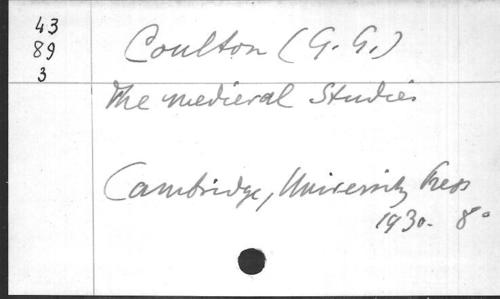 43
89
3
Coulton (G. G.)
The medieval Studies
Cambridge, University Press
1930. 8°